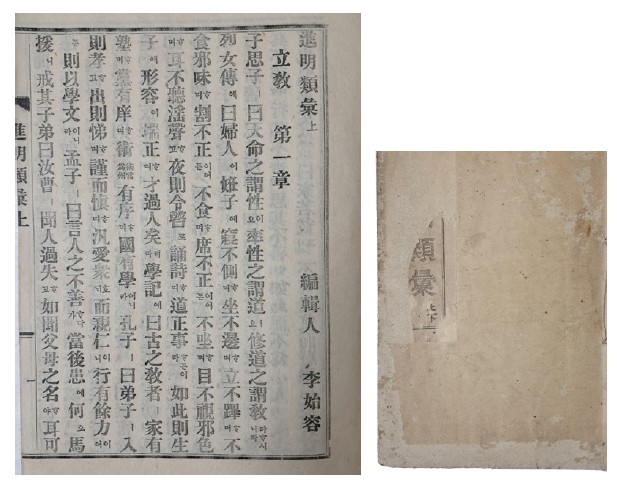 進明類彙 上
立敎 第一章 編輯人 李始容
子思子ㅣ曰天命之謂性이오率性之謂道ㅣ오修道之謂敎ㅣ라하시니라
列女傳에曰婦人이姙子에寢不側하며坐不邊하며立不蹕하며不
食邪味하며割不正이어든不食하며席不正이어든不坐하며目不視邪色
하며耳不聽淫聲하고夜則令瞽로誦詩하며道正事하니如此則生
子에形容이端正하며才過人矣리라學記에曰古之敎者에家有
塾하며黨有庠하며術有序하며國有學이니라孔子ㅣ曰弟子ㅣ入
則孝하고出則悌하며謹而愼하며汎愛衆호되而親仁이니行有餘力이어
든則以學文이니라孟子ㅣ曰言人之不善하다가當後患에何오馬
援이戒其子弟曰汝曹ㅣ聞人過失하고如聞父母之名하야耳可
進明類彙上
一
類彙